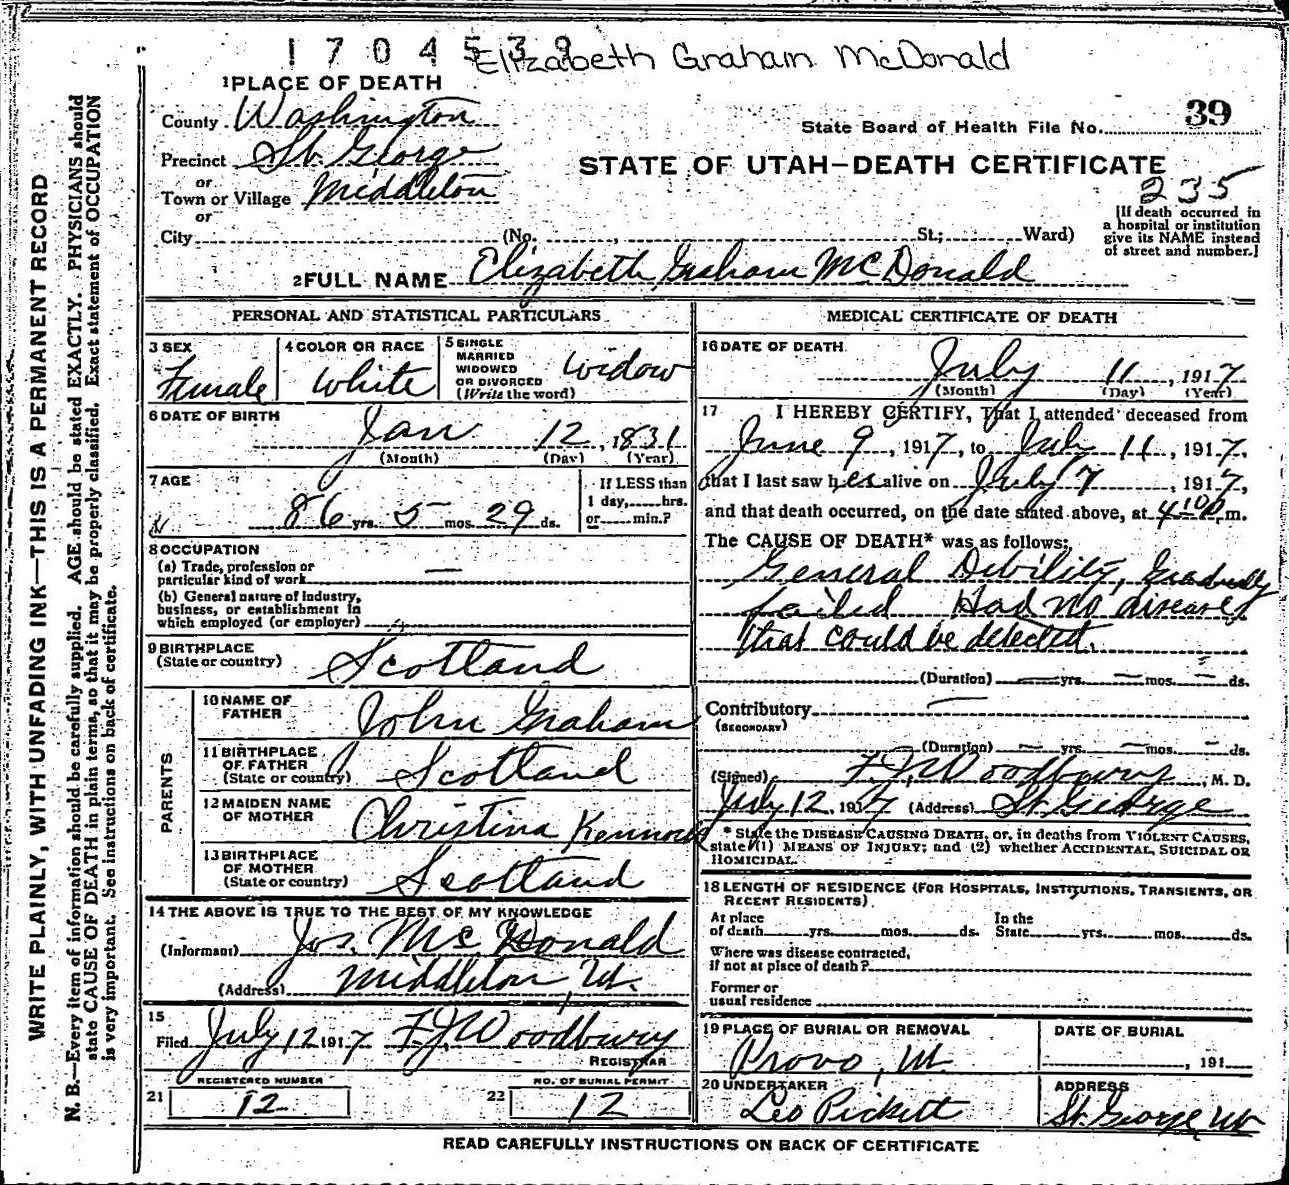 1704539
Elizabeth Graham McDonald
1 PLACE OF DEATH
County Washington
State Board of Health File No. 39
Precinct St. George
STATE OF UTAH—DEATH CERTIFICATE
or
Town or Village Middleton
235
or
City (No. , St.; Ward)
[If death occurred in
a hospital or institution
give its NAME instead
of street and number.]
2 FULL NAME Elizabeth Graham McDonald
PERSONAL AND STATISTICAL PARTICULARS
3 SEX
Female
4 COLOR OR RACE
White
5 SINGLE
MARRIED
WIDOWED
OR DIVORCED
(Write the word)
Widow
6 DATE OF BIRTH
Jan 12, 1831
(Month) (Day) (Year)
7 AGE
86 yrs. 5 mos. 29 ds.
If LESS than
1 day, hrs.
or min.?
8 OCCUPATION
(a) Trade, profession or
particular kind of work —
(b) General nature of industry,
business, or establishment in
which employed (or employer)
9 BIRTHPLACE
(State or country) Scotland
PARENTS
10 NAME OF
FATHER John Graham
11 BIRTHPLACE
OF FATHER
(State or country) Scotland
12 MAIDEN NAME
OF MOTHER Christina
13 BIRTHPLACE
OF MOTHER
(State or country) Scotland
14 THE ABOVE IS TRUE TO THE BEST OF MY KNOWLEDGE
(Informant) Jos. McDonald
(Address) Middleton, Ut.
15
Filed July 12 1917 F.J. Woodbury
REGISTRAR
REGISTERED NUMBER
21 12
NO. OF BURIAL PERMIT
22 12
MEDICAL CERTIFICATE OF DEATH
16 DATE OF DEATH
July 11, 1917
(Month) (Day) (Year)
17 I HEREBY CERTIFY, That I attended deceased from
June 9, 1917, to July 11, 1917,
that I last saw her alive on July 7, 1917,
and that death occurred, on the date stated above, at 4 10 P m.
The CAUSE OF DEATH* was as follows:
General Debility, Gradually
failed Had no disease
that could be detected.
(Duration) — yrs. — mos. — ds.
Contributory —
(SECONDARY)
(Duration) — yrs. — mos. — ds.
(Signed) F.J. Woodbury, M. D.
July 12, 1917 (Address) St. George
* State the DISEASE CAUSING DEATH, or, in deaths from VIOLENT CAUSES,
state (1) MEANS OF INJURY; and (2) whether ACCIDENTAL, SUICIDAL OR
HOMICIDAL.
18 LENGTH OF RESIDENCE (FOR HOSPITALS, INSTITUTIONS, TRANSIENTS, OR
RECENT RESIDENTS)
At place
of death yrs. mos. ds.
In the
State yrs. mos. ds.
Where was disease contracted,
if not at place of death?
Former or
usual residence
19 PLACE OF BURIAL OR REMOVAL
Provo, Ut.
DATE OF BURIAL
, 191
20 UNDERTAKER
Leo Pickett
ADDRESS
St. George, Ut
READ CAREFULLY INSTRUCTIONS ON BACK OF CERTIFICATE
WRITE PLAINLY, WITH UNFADING INK—THIS IS A PERMANENT RECORD
N. B.—Every item of information should be carefully supplied. AGE should be stated EXACTLY. PHYSICIANS should
state CAUSE OF DEATH in plain terms, so that it may be properly classified. Exact statement of OCCUPATION
is very important. See instructions on back of certificate.